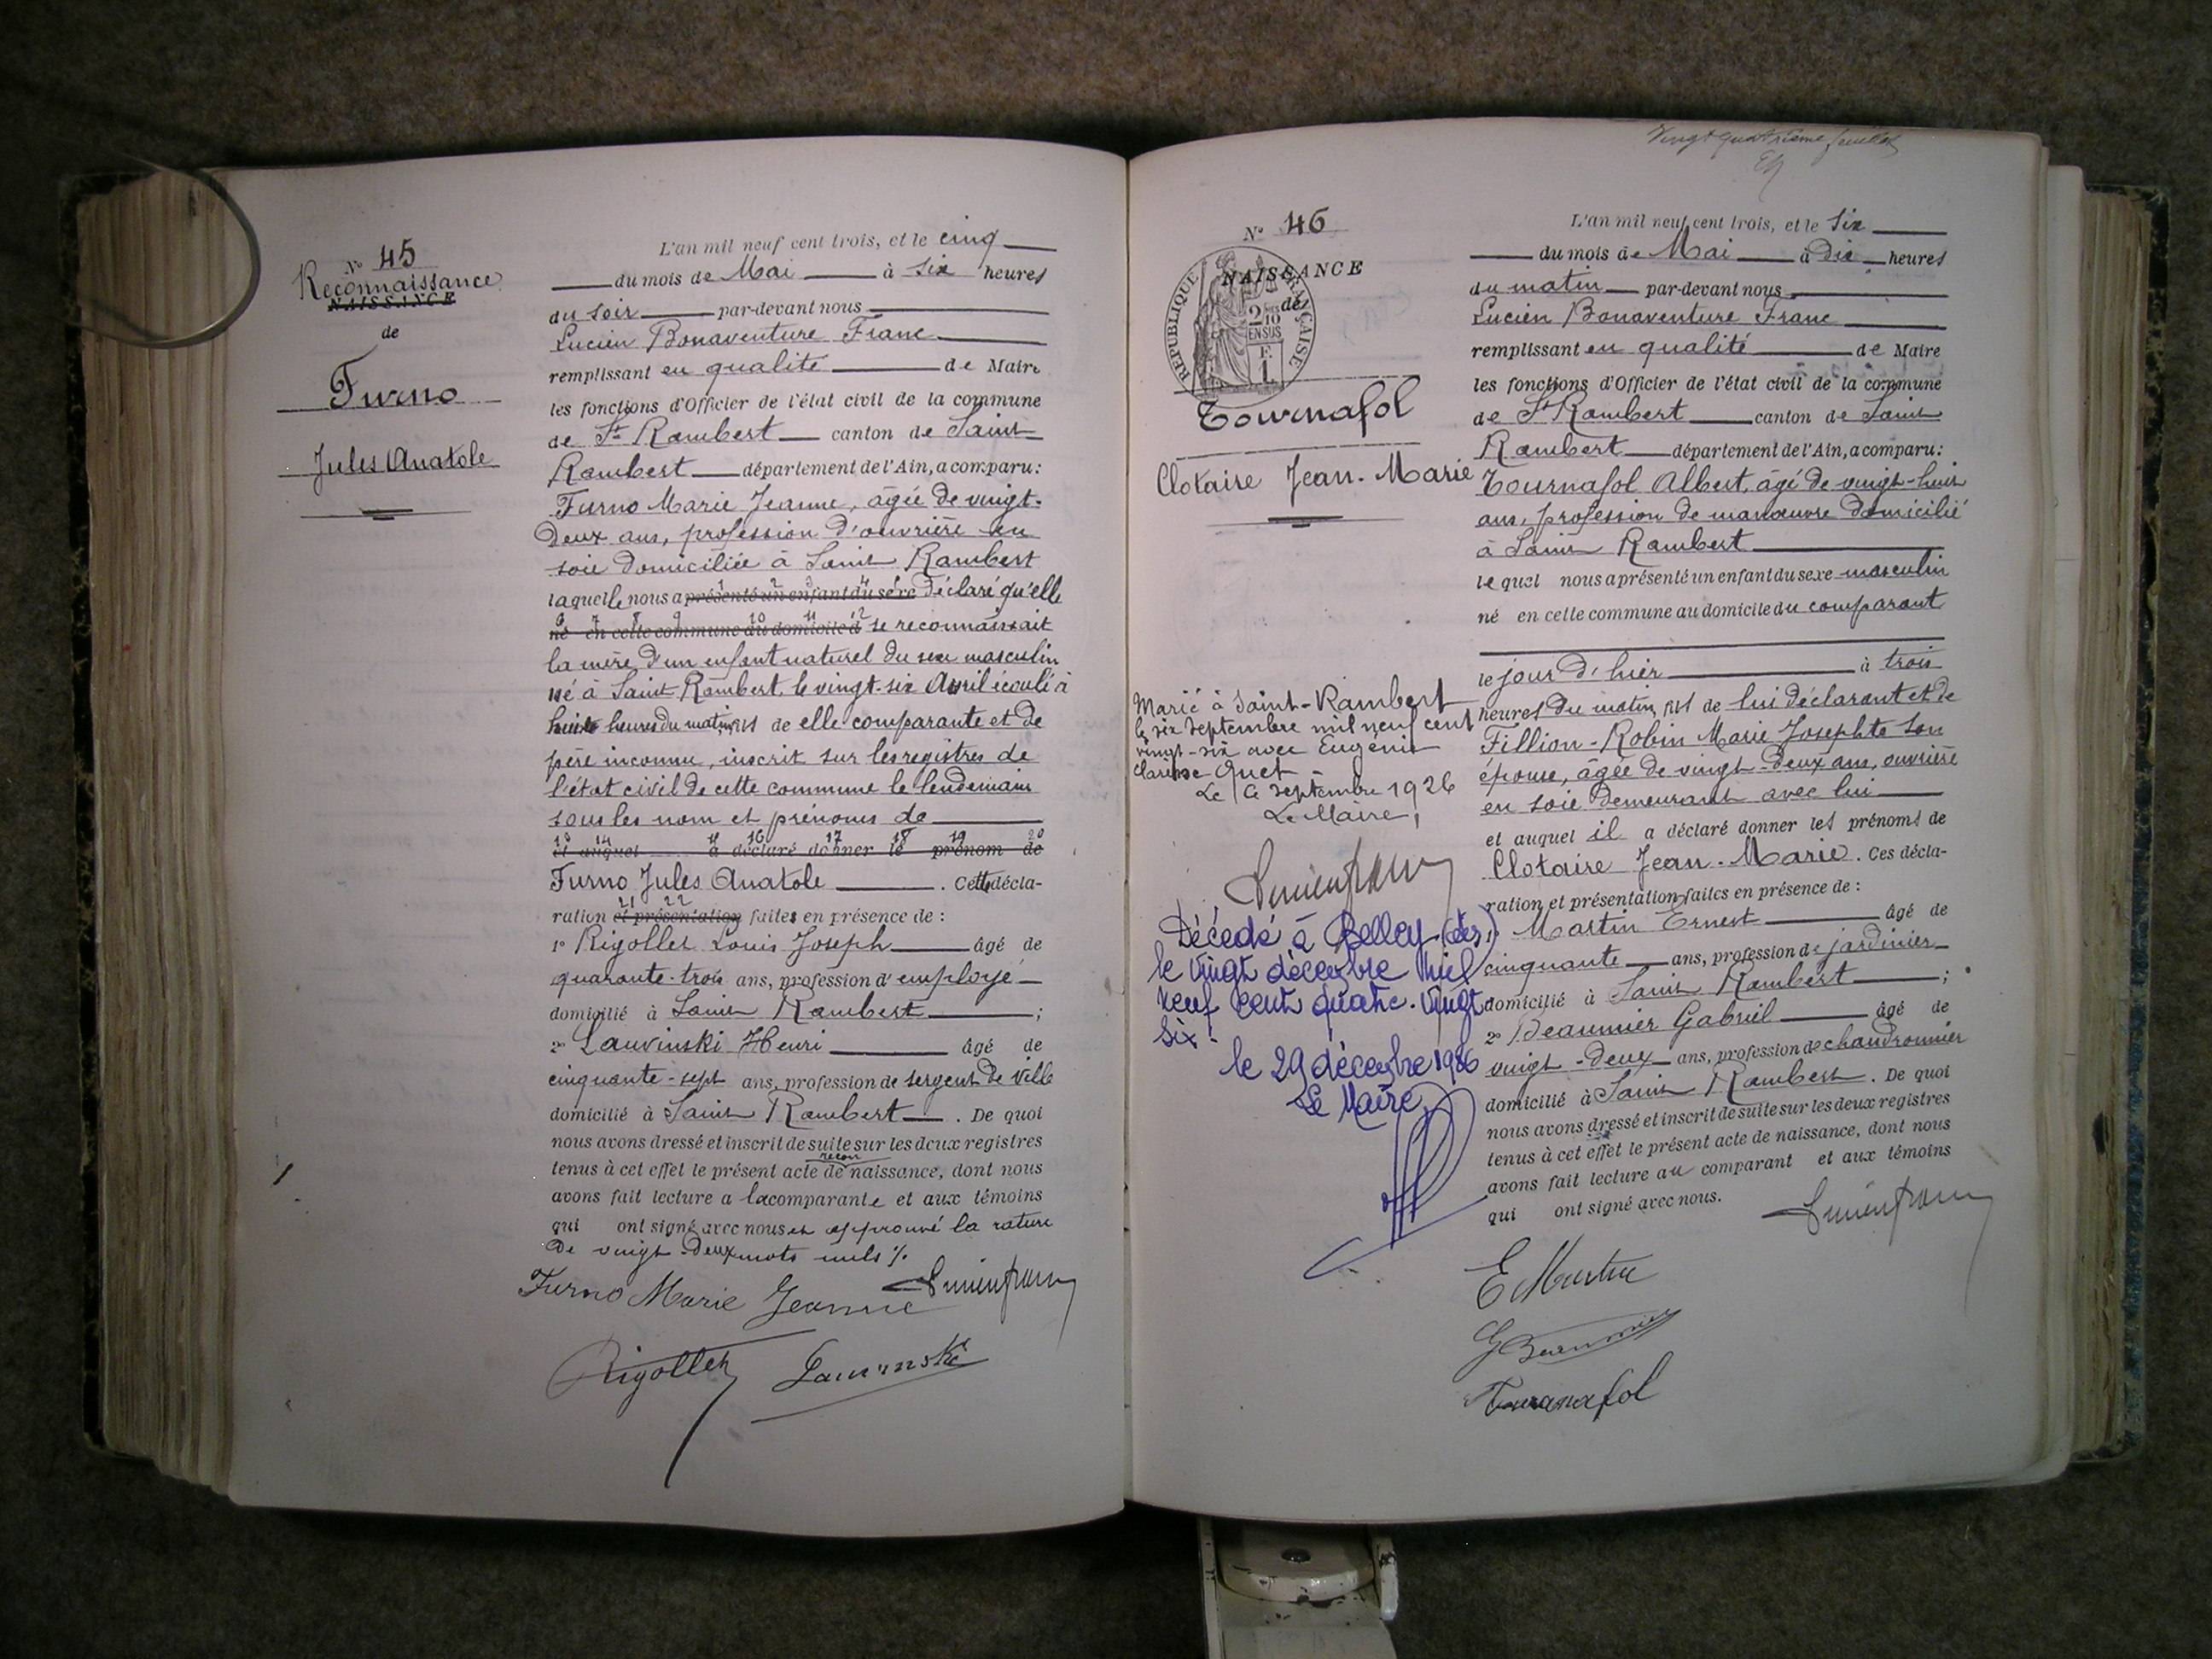 N° 45
Reconnaissance
NAISSANCE
de
Furno
Jules Anatole
L'an mil neuf cent trois, et le cinq
du mois de Mai à six heures
du soir par-devant nous
Lucien Bonaventure Franc
remplissant en qualité de Maire
les fonctions d'Officier de l'état civil de la commune
de St Rambert canton de Saint
Rambert département de l'Ain, a comparu:
Furno Marie Jeanne, âgée de vingt-
deux ans, profession d'ouvrière en
soie domiciliée à Saint Rambert
laquelle nous a présenté un enfant du sexe déclaré qu'elle
né en cette commune au domicile d se reconnaissait
la mère d'un enfant naturel du sexe masculin
né à Saint-Rambert, le vingt-six Avril écoulé à
huit heures du matin, fils de elle comparante et de
père inconnu, inscrit sur les registres de
l'état civil de cette commune le lendemain
sous les nom et prénoms de
13 14 15 16 17 18 19 20
et auquel a déclaré donner le prénom de
Furno Jules Anatole. Cette décla-
21 22
ration et présentation faites en présence de :
1° Rigollet Louis Joseph âgé de
quarante-trois ans, profession d'employé
domicilié à Saint Rambert ;
2° Lauvinski Henri âgé de
cinquante-sept ans, profession de sergent de ville
domicilié à Saint Rambert. De quoi
nous avons dressé et inscrit de suite sur les deux registres
recon
tenus à cet effet le présent acte de naissance, dont nous
avons fait lecture a la comparante et aux témoins
qui ont signé avec nous et approuvé la rature
de vingt-deux mots nuls %.
Furno Marie Jeanne
Rigollet Lauvinski
Vingt quatrième feuillet
N° 46
NAISSANCE
de
REPUBLIQUE FRANÇAISE
2/10
EN SUS
Tournafol
Clotaire Jean-Marie
L'an mil neuf cent trois, et le six
du mois de Mai à Dix heures
du matin par-devant nous
Lucien Bonaventure Franc
remplissant en qualité de Maire
les fonctions d'Officier de l'état civil de la commune
de St Rambert canton de Saint
Rambert département de l'Ain, a comparu:
Tournafol Albert, âgé de vingt-huit
ans, profession de manœuvre domicilié
à Saint Rambert
lequel nous a présenté un enfant du sexe masculin
né en cette commune au domicile du comparant
le jour d'hier à trois
heures du matin, fils de lui déclarant et de
Fillion-Robin Marie Josephte son
épouse, âgée de vingt-deux ans, ouvrière
en soie demeurant avec lui
et auquel il a déclaré donner les prénoms de
Clotaire Jean-Marie. Ces décla-
ration et présentation faites en présence de :
1° Martin Ernest âgé de
cinquante ans, profession de jardinier
domicilié à Saint Rambert ;
2° Beaumier Gabriel âgé de
vingt-deux ans, profession de chaudronnier
domicilié à Saint Rambert. De quoi
nous avons dressé et inscrit de suite sur les deux registres
tenus à cet effet le présent acte de naissance, dont nous
avons fait lecture au comparant et aux témoins
qui ont signé avec nous.
E Martin
G Beaumier
Tournafol
Marié à Saint-Rambert
le six septembre mil neuf cent
vingt-six avec Eugénie
Clarisse
Le 6 septembre 1926
Le Maire,
Décédé à Belley (Ain)
le vingt décembre mil
neuf cent quatre-vingt
six.
le 29 décembre 1986
Le Maire